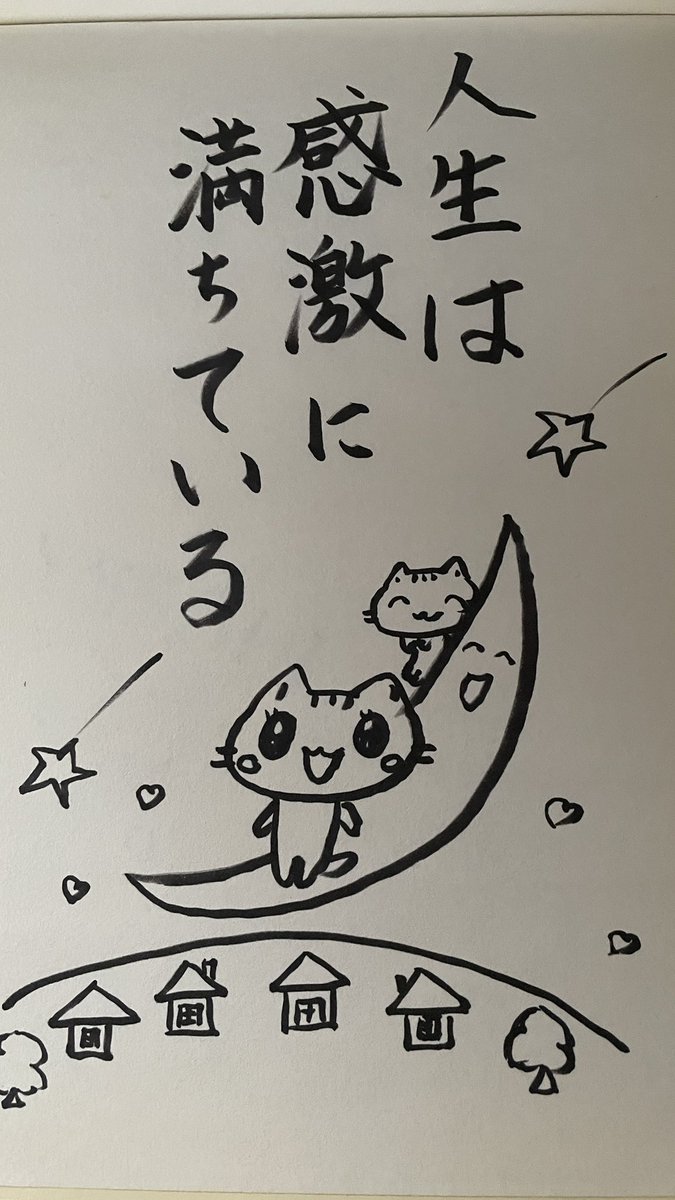 人生は
感激に
満ちている